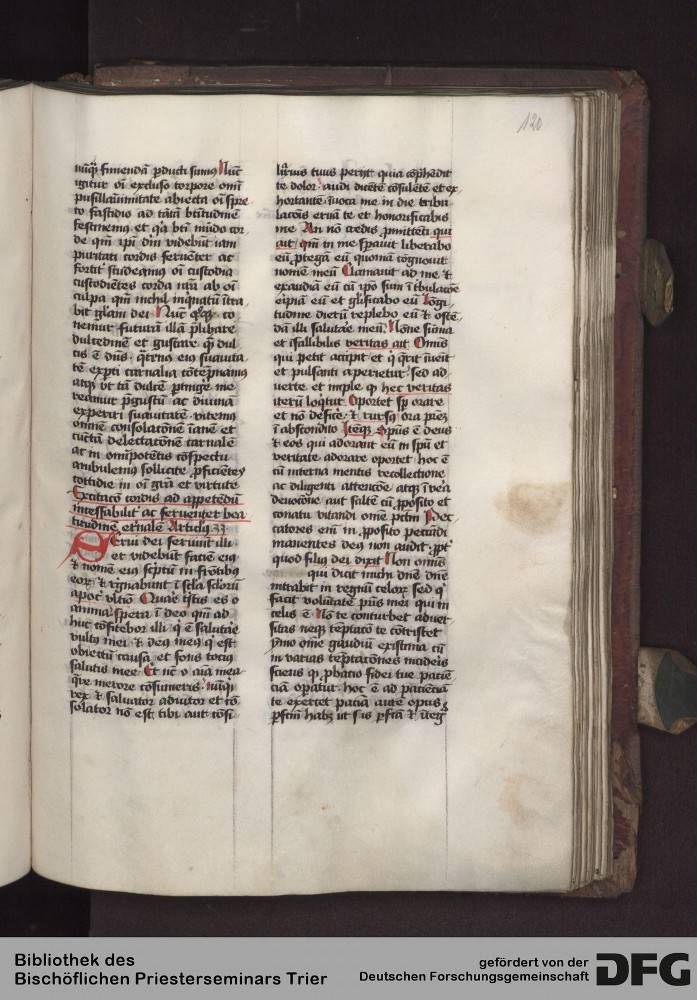 120
nūq̄ȝ finiendā ꝓducti sumus Nūc
igitur oī excluso torpore omī
pusillaīmitate abiecta oī spre
to fastidio ad tātā btītudinē
festinemus et qꝛ btī mūdo cor
de qm̄ ipī dm̄ videbūt iam
puritati cordis feruēter ac
fortit studeamus oī custodia
custodiētes corda nrā ab oī
culpa qm̄ nichil inqinatū ītra
bit gl̄am dei Nūc co
nemur futurā illā p̄libare
dulcedinē et gustare qꝫ dul
cis ē dn̄s qtenus eiꝰ suauita
tē expti carnalia cōtēpnamus
atqꝫ vt tā dulcē ptingē me
reamur p̄gustū ac diuinā
experiri suauitatē vitemus
omnē consolacōnē īanē et
cūctā delectacōnē carnalē
ac in omīpotētis cōspectu
ambulemus sollicite ꝓficiētes
cottidie in oī grā et virtute
Excitacō cordis ad appetendū
ineffabilit ac feruenter bea
titudinē et̓nalē Articlꝰ 33
Serui dei seruiūt illi
et videbūt faciē eiꝰ
⁊ nomē eiꝰ sc̄ptū in frōtibus
eoꝝ ⁊ regnabunt ī scl̄a scl̄orū
apoc̄ vltīo Quare tristis es o
anima spera ī deo qm̄ ad
huc cōfitebor illi qi ē salutare
vultꝰ mei ⁊ deus meꝰ qi est
obiectū causa et fons tociꝰ
salutis mee Et nūc o aīa mea
qre merore cōsumeris nūqi
rex ⁊ saluator adiutor et cō
solator nō est tibi aut cōsi
liarius tuus perijt quia cōp̄hēdit
te dolor audi dicētē cōsulētē et ex
hortantē īuoca me in die tribu
lacōnis eruā te et honorificabis
me An nō credis ꝓmittēti qui
ait qm̄ in me sp̄auit liberabo
eū ꝓtegā eū quoniā cognouit
nomē meū Clamauit ad me ⁊
exaudiā eū cū ip̄o sum ī tbulacōe
eripiā eū et gl̄ificabo eū Lōgi
tudine dierū replebo eū ⁊ oste
dā illi salutāe meū Nōne sūma
et īfallibilis veritas ait Omīs
qui petit accipit et qi q̄rit īuēit
et pulsanti aperietur Sed ad
uerte et imple qꝫ hec veritas
iterū loqitur Oportet sp̄ orare
et nō deficē ⁊ rursꝫ ora p̄rez
ī abscondito Itēqꝫ Spūs ē deus
⁊ eos qui adorant eū in sp̄u et
veritate adorare oportet hoc ē
cū interna mentis recollectione
ac diligenti attencōe atqꝫ ī vera
deuocōne aut saltē cū ꝓposito et
conatu vitandi omē pctm̄ Pec
catores em̄ in ꝓposito peccādi
manentes deus non audit ꝓpt̓
quod filiꝰ dei dixit Non omīs
qui dicit michi dn̄e dn̄e
intrabit in regnū celoꝝ sed qi
facit volūtatē p̄ris mei qui in
celis ē Nō te conturbet aduer
sitas neqꝫ teptatō te cōtristet
ymo omē gaudiū existima cū
in varias teptacōnes īcideris
sciens qꝫ ꝓbatio fidei tue paciē
ciā operatur hoc ē ad paciēcia
te exercet paciā autē opus
ꝑfctm̄ habet ut sis ꝑfctā ⁊ iteg
Bibliothek des
Bischöflichen Priesterseminars Trier
gefördert von der
Deutschen Forschungsgemeinschaft
DFG